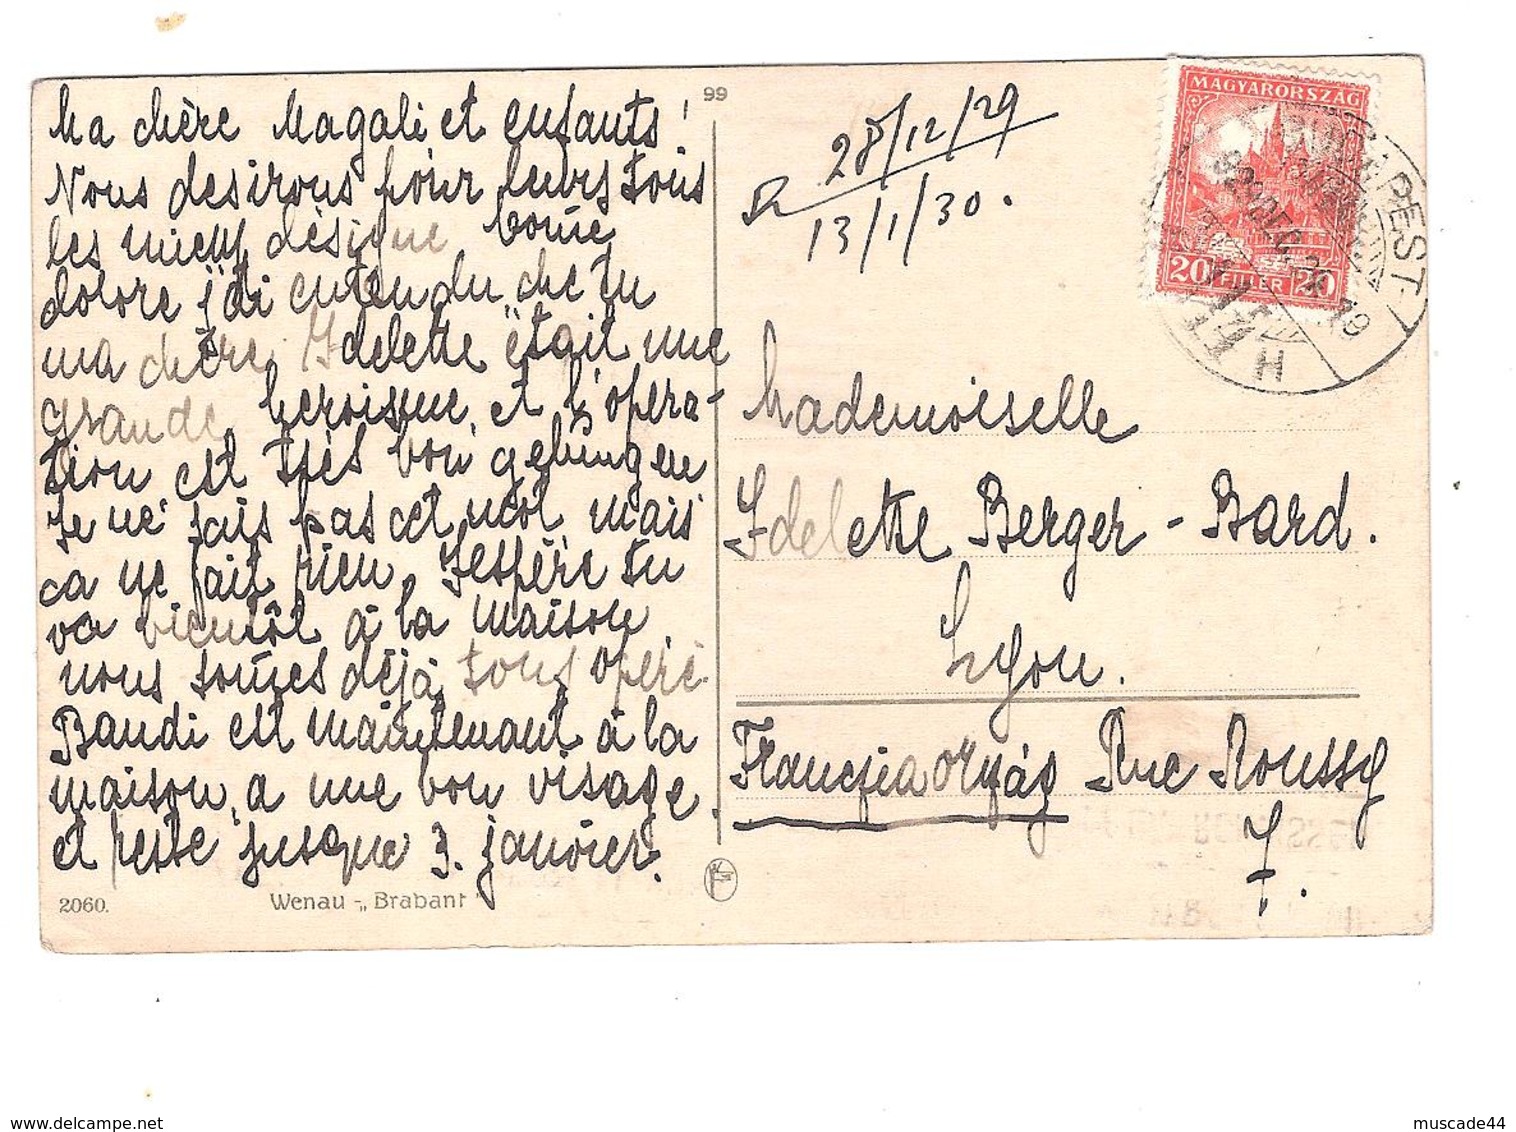 Ma chère Magali et enfants!
Nous desirons pour leurs tous
les mieux désique bonne
dolore j'ai entendu che tu
ma chère Idelette était une
grande heroisque et l'opera-
tion est très bon gelungen
Je ne sais pas cet mot mais
ca ne fait rien. J'espère tu
va bientôt à la maison
nous somes déjà tous operé
Bandi est maintenant à la
maison, a une bon visage
et reste jusque 3. janvier.
2060.
Wenau - „Brabant"
99
R 28/12/29
13/1/30.
MAGYARORSZÁG
20 FILLÉR 20
BUDAPEST
Mademoiselle
Idelette Berger - Bard.
Lyon.
Franciaország Rue Roussy
7.
delcampe.net
muscade44